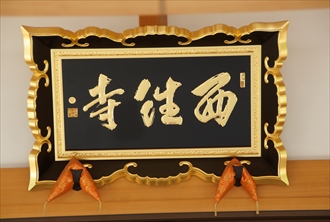 西往寺